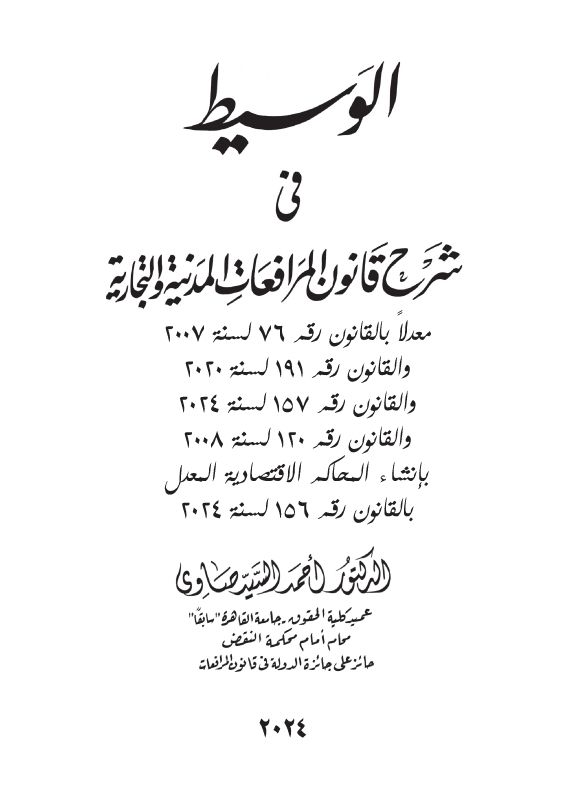 الوسيط
فى
شرح قانون المرافعات المدنية والتجارية
معدلاً بالقانون رقم ٧٦ لسنة ٢٠٠٧
والقانون رقم ١٩١ لسنة ٢٠٢٠
والقانون رقم ١٥٧ لسنة ٢٠٢٤
والقانون رقم ١٢٠ لسنة ٢٠٠٨
بإنشاء المحاكم الاقتصادية المعدل
بالقانون رقم ١٥٦ لسنة ٢٠٢٤
الدكتور أحمد السيد صاوى
عميد كلية الحقوق - جامعة القاهرة "سابقاً"
محام أمام محكمة النقض
حائز على جائزة الدولة فى قانون المرافعات
٢٠٢٤